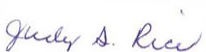 Judy A. Rice